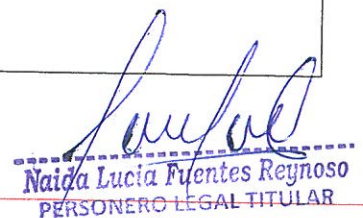 Naida Lucia Fuentes Reynoso
PERSONERO LEGAL TITULAR